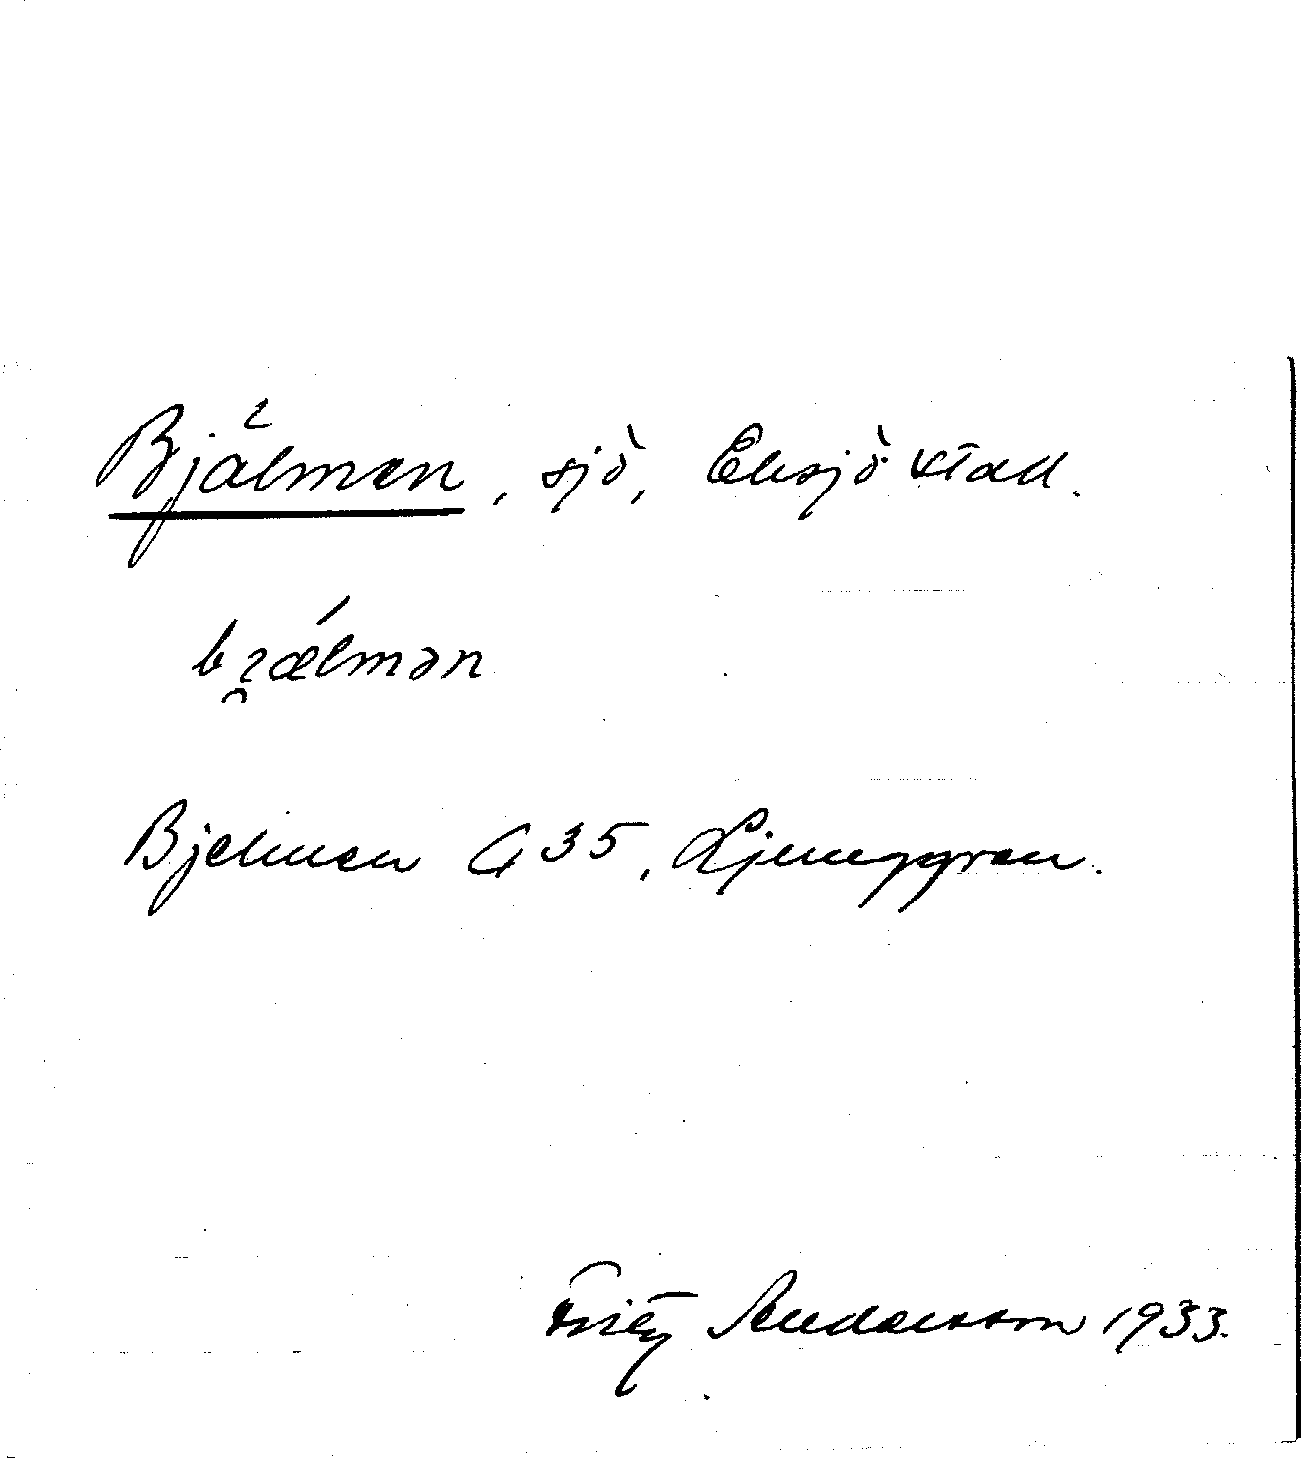 Bjälmen, sjö, Eksjö stad.
bʒǽ̨lmən
Bjelmen G 35, Ljunggren.
Fritz Andersson 1933.